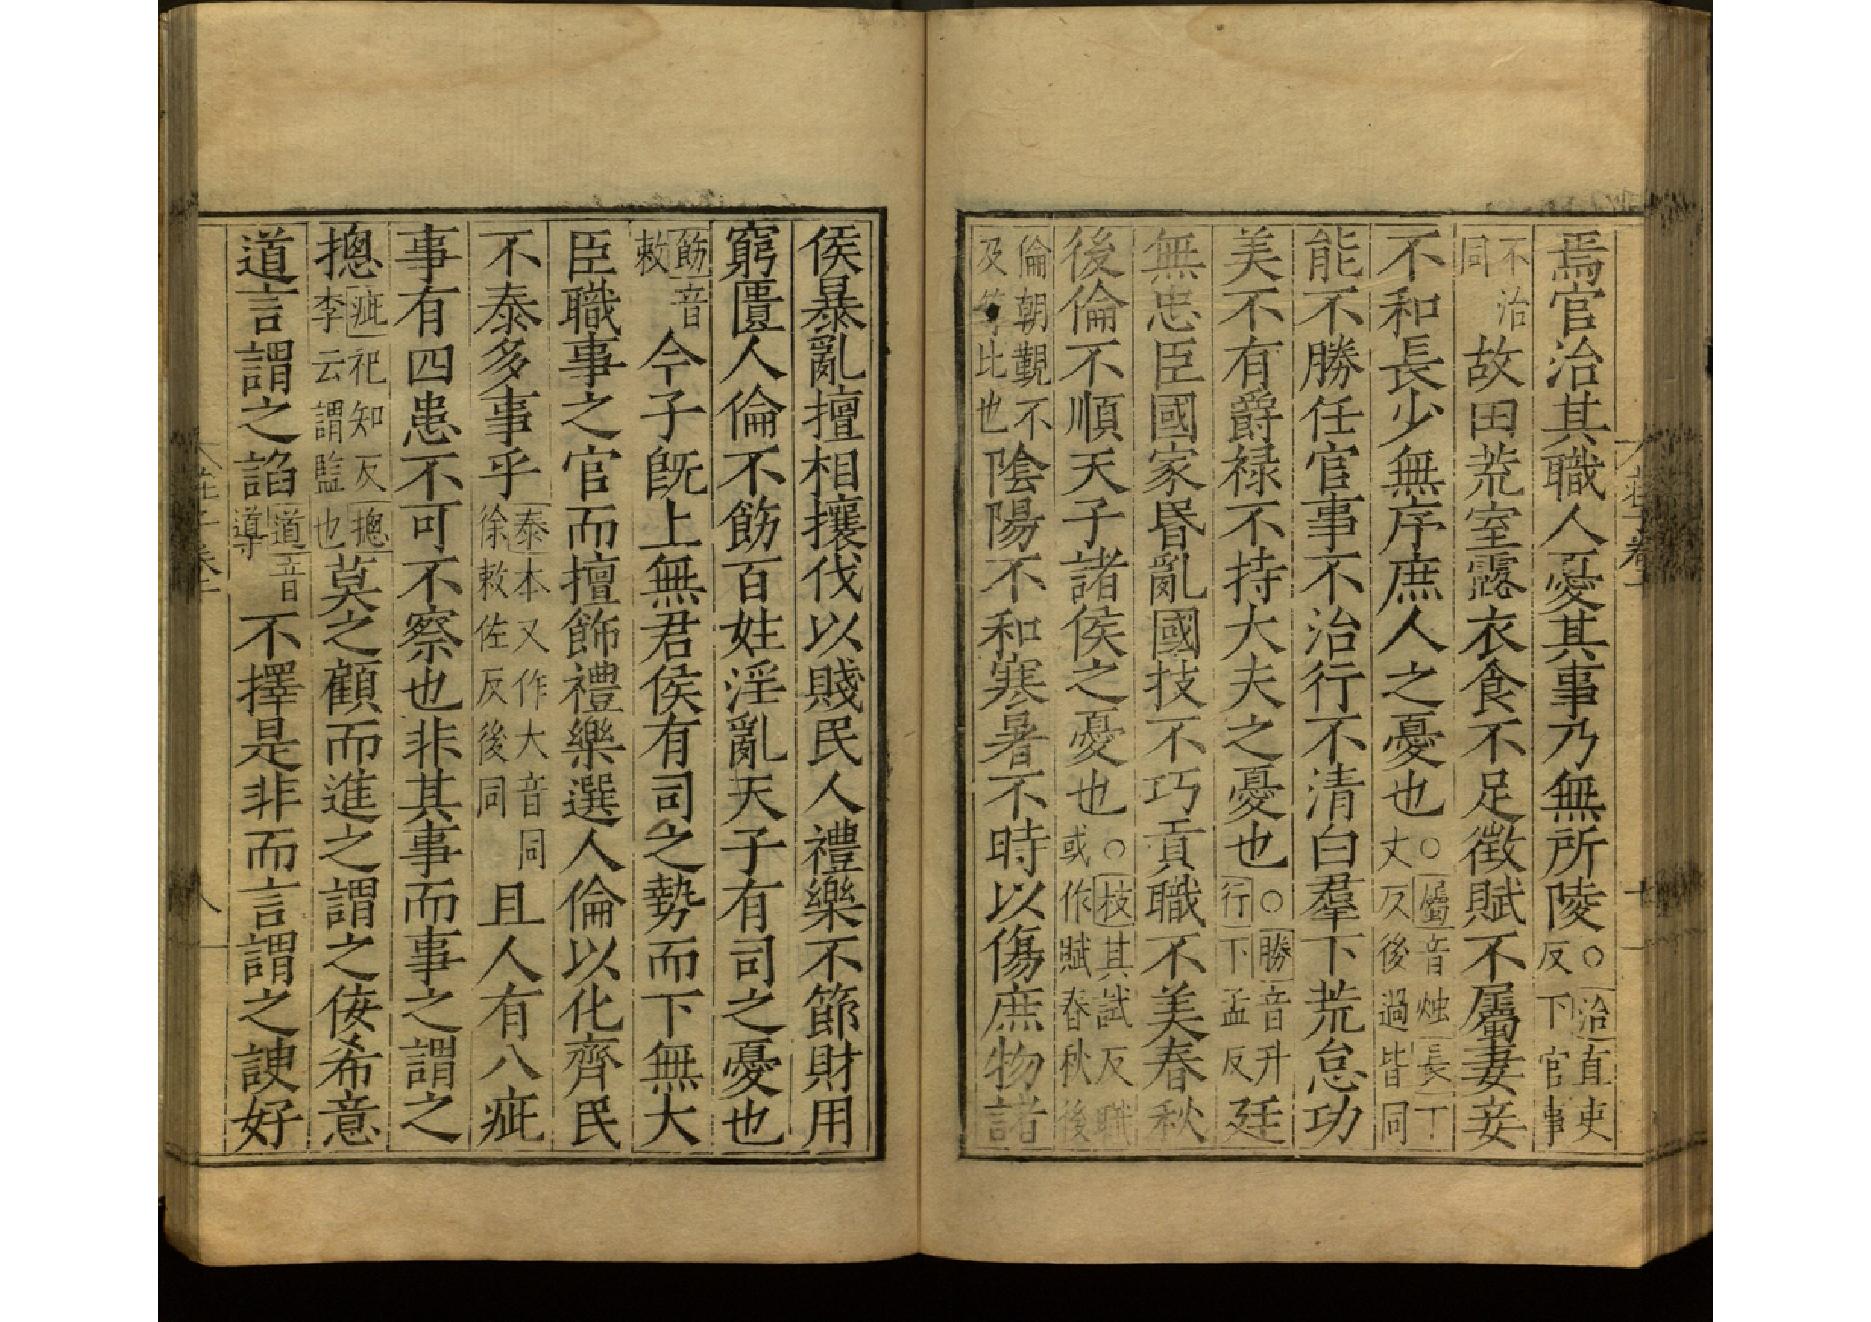 焉官治其職人憂其事乃無所陵○治直吏反下官事
不治同故田荒室露衣食不足徵賦不屬妻妾
不和長少無序庶人之憂也○屬音烛長丁丈反後過皆同
能不勝任官事不治行不清白羣下荒怠功
美不有爵禄不持大夫之憂也○勝音升行下孟反廷
無忠臣國家昬亂國技不巧貢職不美春秋
後倫不順天子諸侯之憂也○技其試反職或作賦春秋後
倫朝覲不及等比也陰陽不和寒暑不時以傷庶物諸
侯暴亂擅相攘伐以賤民人禮樂不節財用
窮匱人倫不飭百姓淫亂天子有司之憂也
飭音敕今子旣上無君侯有司之勢而下無大
臣職事之官而擅飾禮樂選人倫以化齊民
不泰多事乎泰本又作大音同徐敕佐反後同且人有八疵
事有四患不可不察也非其事而事之謂之
摠疵祀知反摠李云謂監也莫之顧而進之謂之佞希意
道言謂之諂道音導不擇是非而言謂之諛好
莊子卷十
十
莊子卷十
八